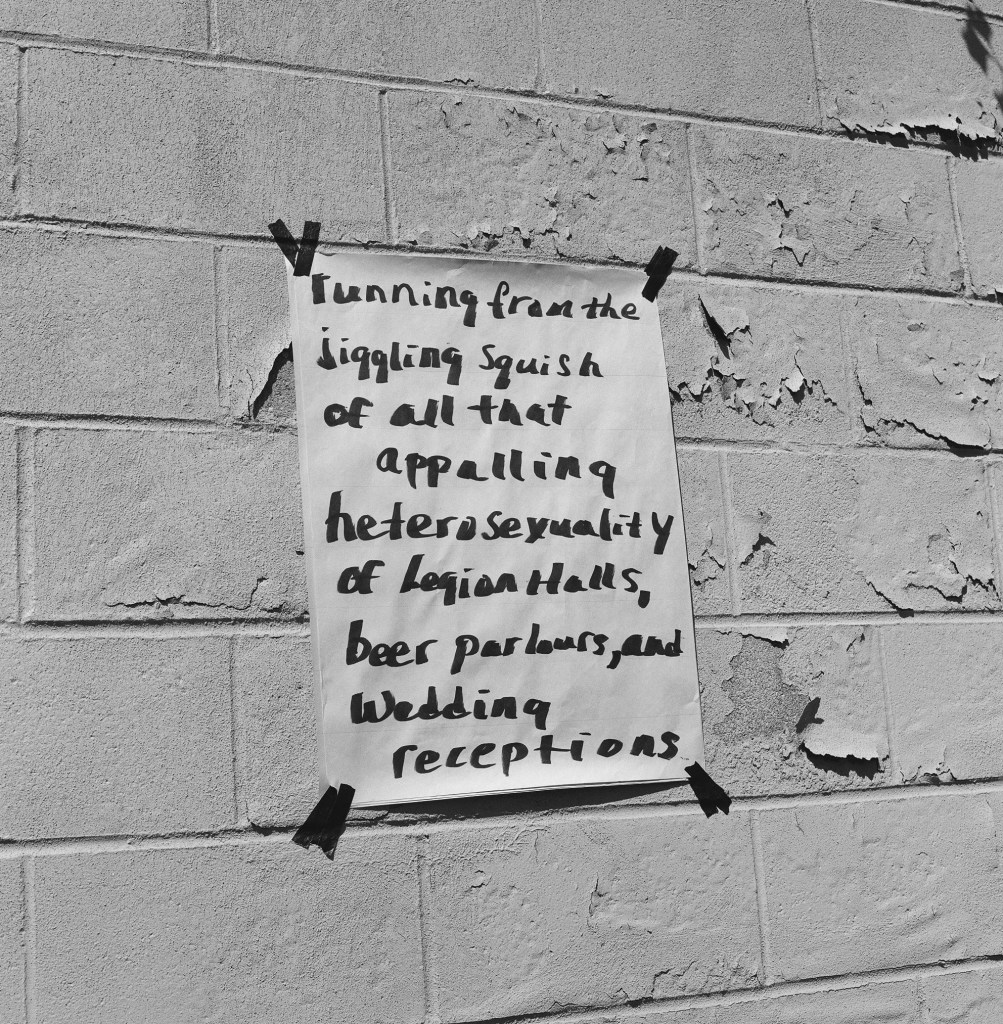 running from the
jiggling squish
of all that
appalling
heterosexuality
of Legion Halls,
beer parlours, and
Wedding
receptions